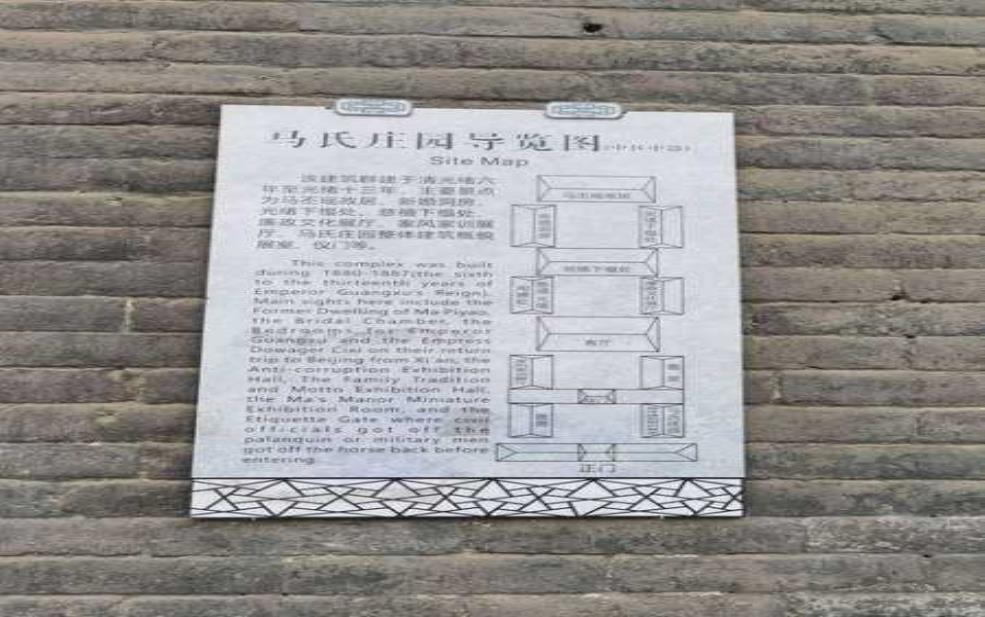 马氏庄园导览图
Site Map
该建筑群建于清光绪六
年至光绪十三年，主要景点
为马丕瑶故居、新婚洞房、
光绪下榻处、慈禧下榻处、
廉政文化展厅、家风家训展
厅、马氏庄园整体建筑微缩
展室、仪门等。
This complex was built
during 1880-1887(the sixth
to the thirteenth years of
Emperor Guangxu's Reign).
Main sights here include the
Former Dwelling of Ma Piyao,
the Bridal Chamber, the
Bedrooms for Emperor
Guangxu and the Empress
Dowager Cixi on their return
trip to Beijing from Xi'an, the
Anti-corruption Exhibition
Hall, The Family Tradition
and Motto Exhibition Hall,
the Ma's Manor Miniature
Exhibition Room, and the
Etiquette Gate where civil
officials got off the
palanquin or military men
got off the horse back before
entering.
马丕瑶故居
慈禧下榻处
客厅
正门